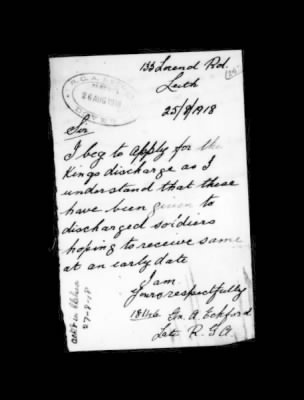 133 Lorend Rd.
Leith
25/8/1918
R.G.A.
26 AUG 1918
DOVER
Sir
I beg to apply for the
Kings discharge as I
understand that these
have been given to
discharged soldiers
hoping to receive same
at an early date
I am
Yours respectfully
Gn. A. Eckford
Late R.G.A.
27-8-18